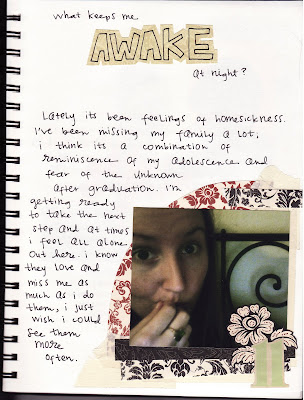 what keeps me
AWAKE
at night?
Lately its been feelings of homesickness.
I've been missing my family a lot;
i think its a combination of
reminiscence of my adolescence and
fear of the unknown
after graduation. I'm
getting ready
to take the next
step and at times
i feel all alone
out here. i know
they love and
miss me as
much as i do
them, i just
wish i could
see them
more
often.
11